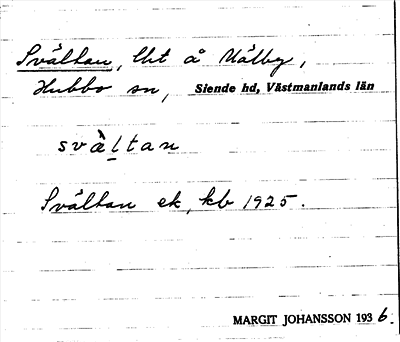 Svältan, lht å Målby,
Hubbo sn, Siende hd, Västmanlands län
svὰl̲tan
Svältan ek, kb 1925.
MARGIT JOHANSSON 1936.